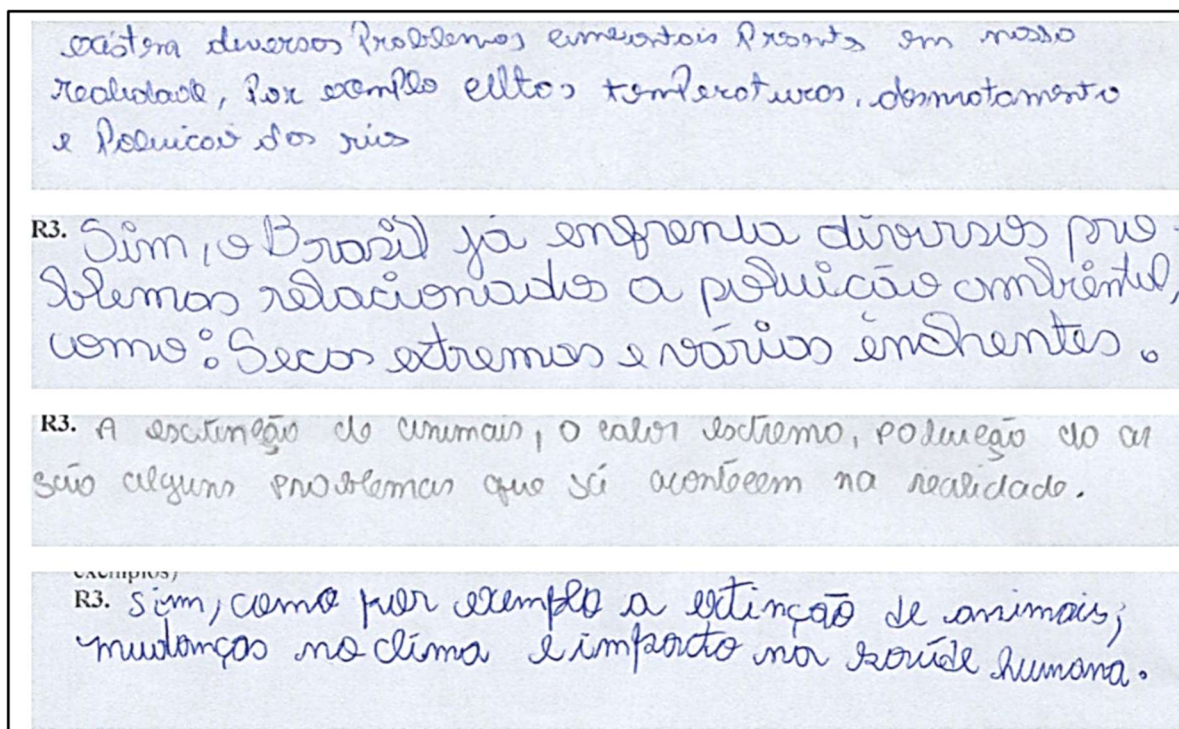 existem diversos Problemas
em nosso
realidade, Por exemplo temperaturas, desmatamento
e Poluicoi dos rios
R3. Sim, o Brasil já enfrenta diversos pro-
blemas relacionados a poluição ambiental,
como: Secas extremas e várias enchentes.
R3. A de animais, o calor extremo, do ar
são alguns problemas que já acontecem na realidade.
exemplos)
R3. Sim, como por exemplo a extinção de animais,
mudanças no clima e impacto na saúde humana.